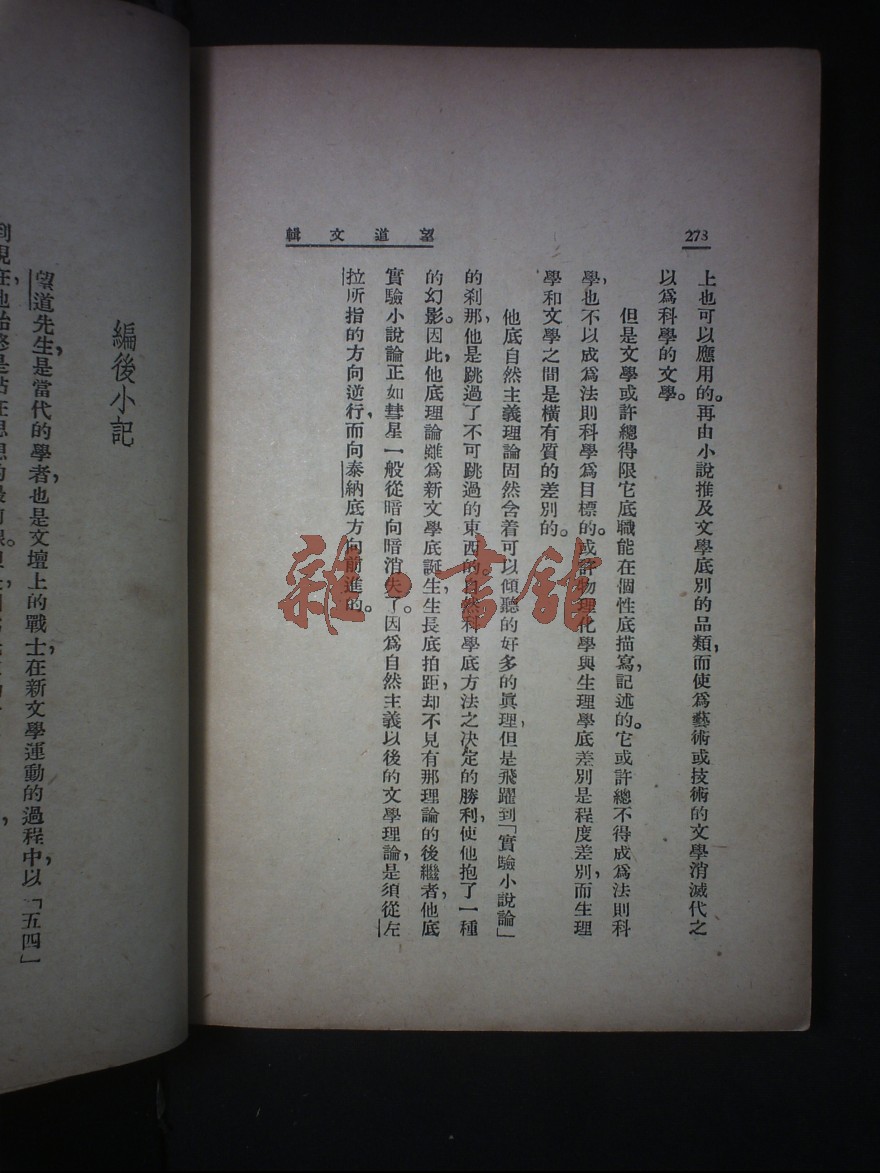 273
望道文輯
上也可以應用的。再由小說推及文學底別的品類，而使爲藝術或技術的文學消滅代之
以爲科學的文學。
但是文學或許總得限它底職能在個性底描寫，記述的。它或許總不得成爲法則科
學，也不以成爲法則科學爲目標的。或許物理化學與生理學底差別是程度差別，而生理
學和文學之間是橫有質的差別的。
他底自然主義理論固然含着可以傾聽的好多的眞理，但是飛躍到「實驗小說論」
的刹那，他是跳過了不可跳過的東西的。自然科學底方法之決定的勝利，使他抱了一種
的幻影。因此，他底理論雖爲新文學底誕生，生長底拍距，却不見有那理論的後繼者，他底
實驗小說論正如彗星一般從暗向暗消失了。因爲自然主義以後的文學理論，是須從左
拉所指的方向逆行，而向泰納底方向前進的。
雜·書館
編後小記
望道先生是當代的學者，也是文壇上的戰士，在新文學運動的過程中，以「五四」
到現在，他始終是站在思想的最前線。